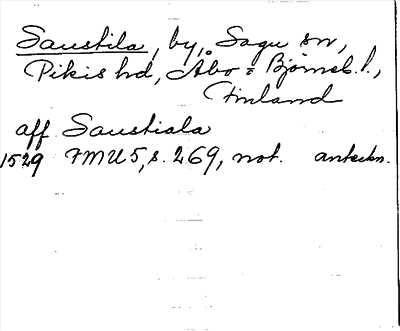 Saustila, by, Sagu sn,
Pikis hd, Åbo = Björneb. l.,
Finland
aff Saustiala
1529 FMU 5, s. 269, not. anteckn.